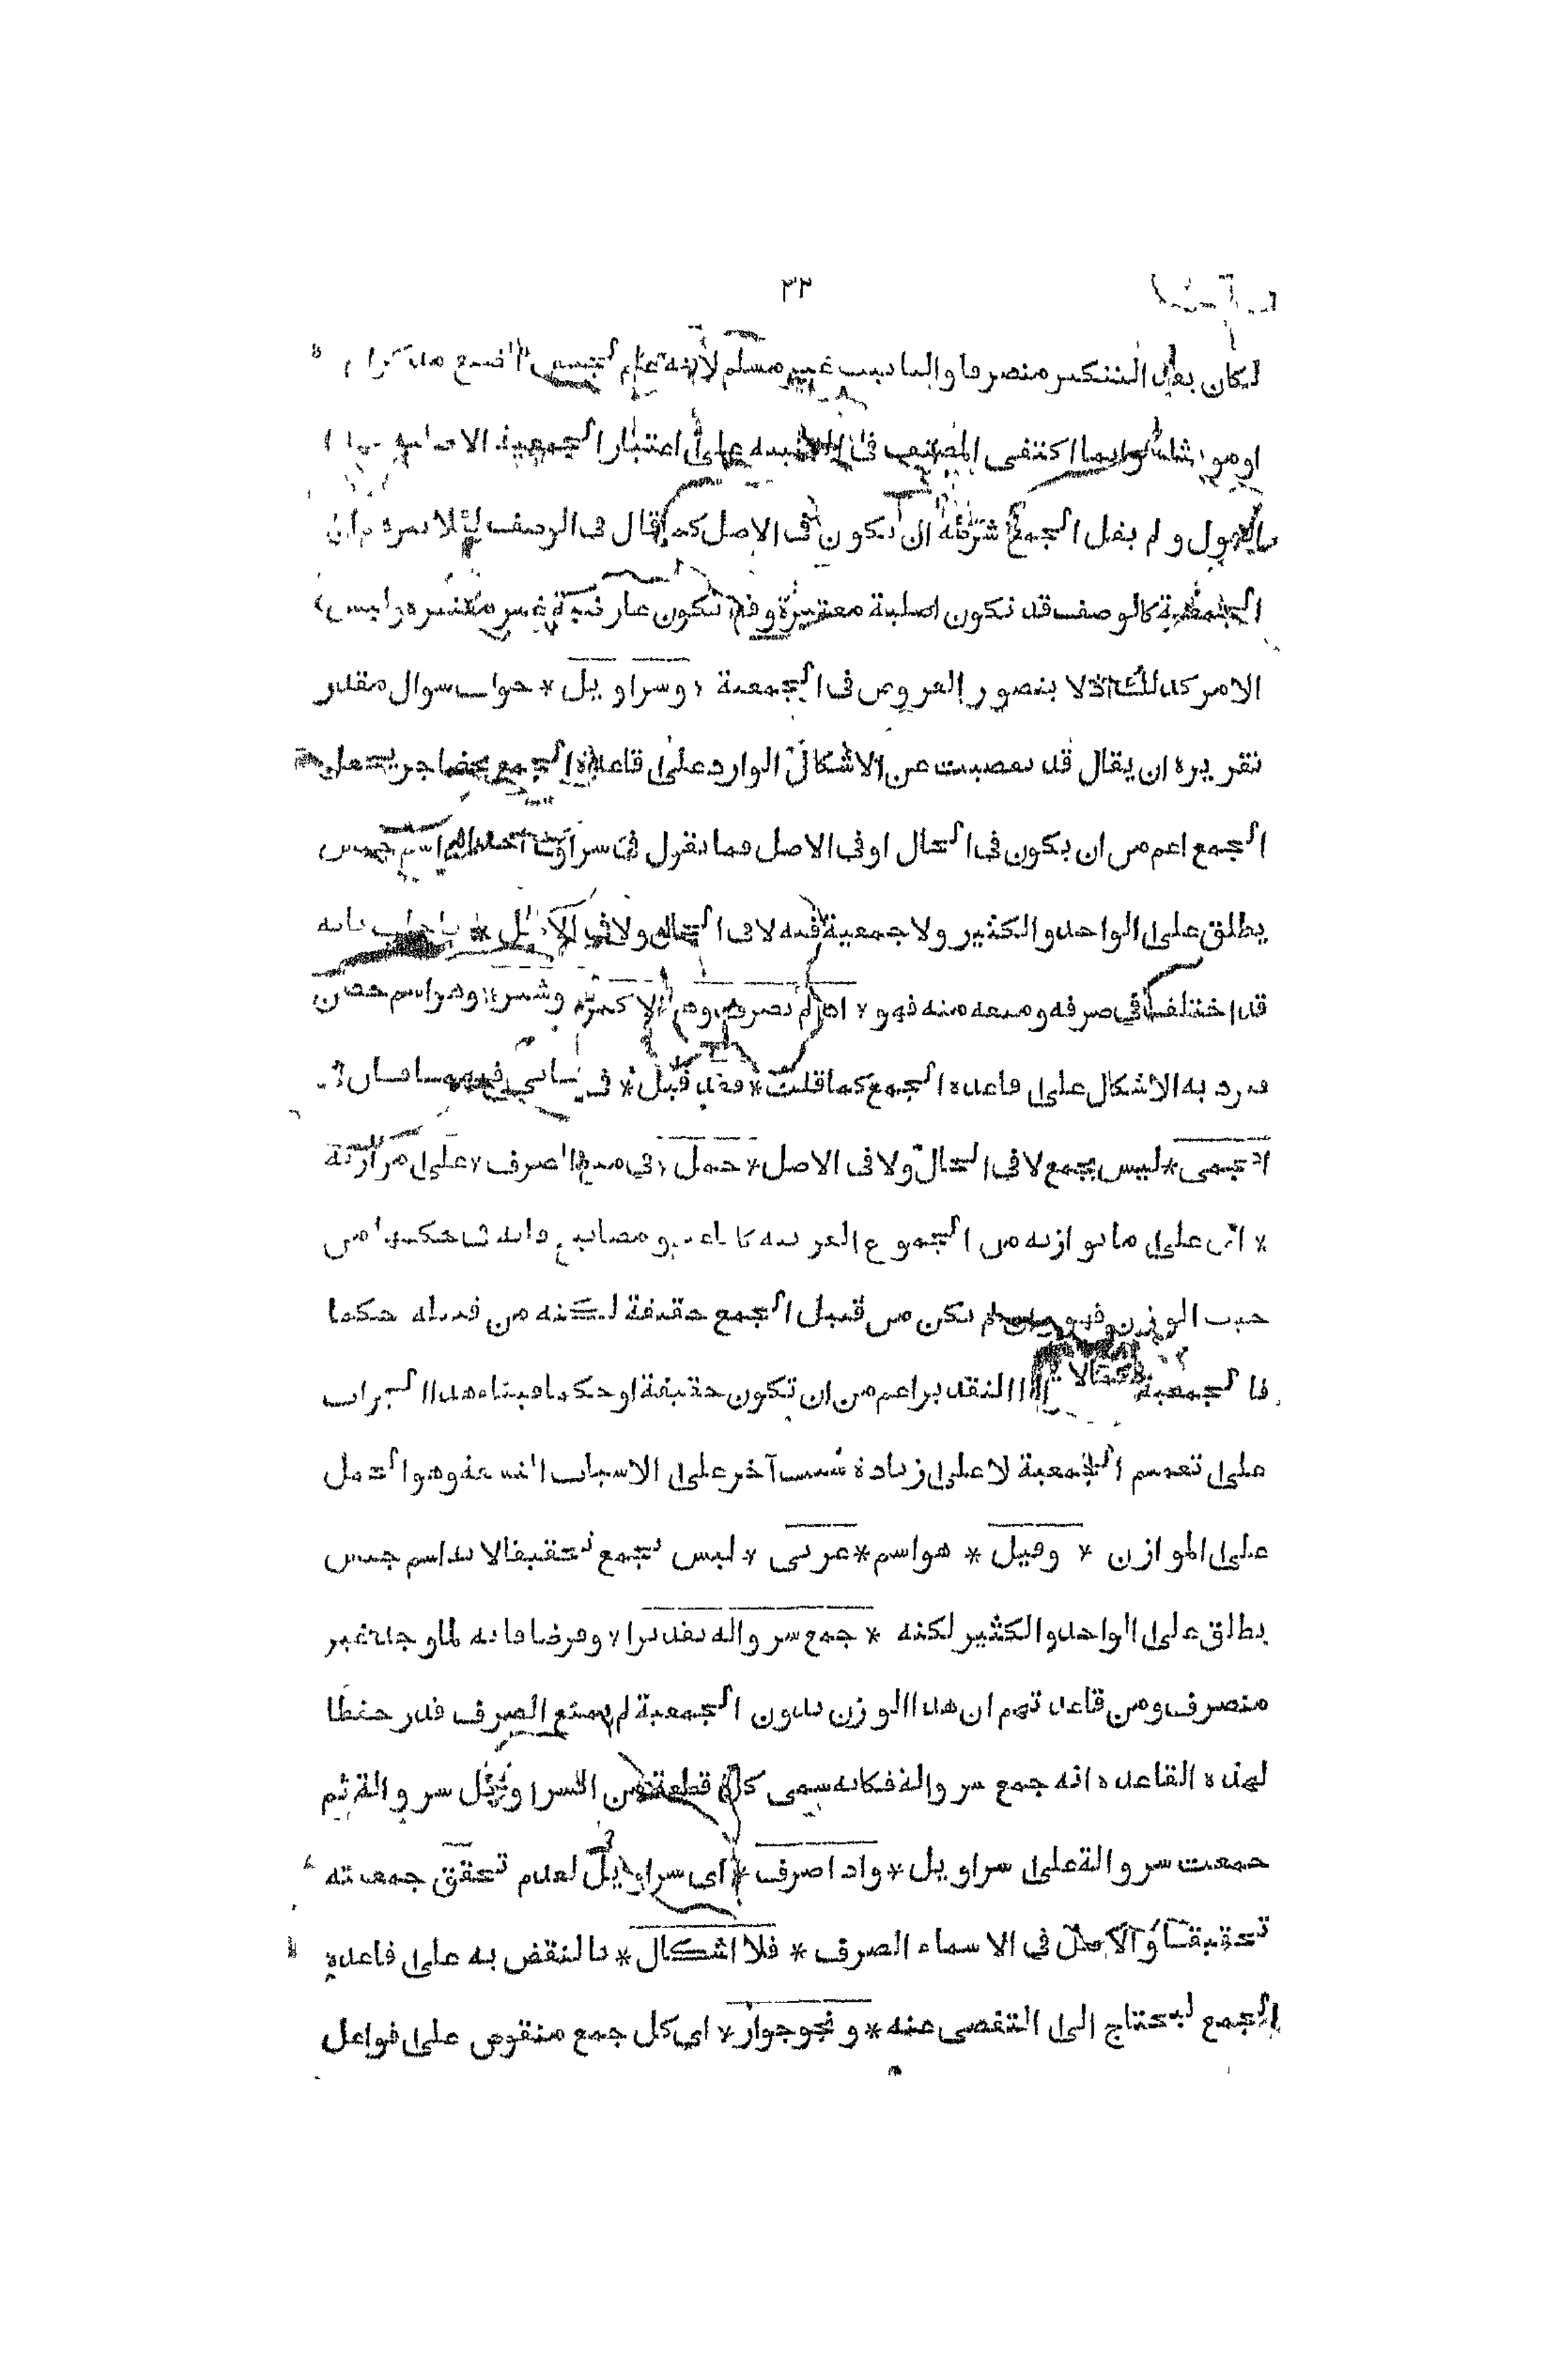 ٣٣
لكان بعد التنكير منصرفا والتانيث غير مسلم لانه علم لجنس الضبع مذكرا
او مونثا وانما اكتفى المصنف فى التنبيه على اعتبار الجمعية الاصلية
ولم يقل الجمع شرطه ان يكون فى الاصل كما قال فى الوصف لئلا يتوهم ان
الجمعية كالوصف قد تكون اصلية معتبرة وقد تكون عارضية غير معتبرة وليس
الامر كذلك اذ لا يتصور العروض فى الجمعية * وسراويل * جواب سوال مقدر
تقريره ان يقال قد تفصيت عن الاشكال الوارد على قاعدة الجمع بحضاجر بجعل
الجمع اعم من ان يكون فى الحال او فى الاصل فما تقول فى سراويل فانه اسم جنس
يطلق على الواحد والكثير ولا جمعية فيه لا فى الحال ولا فى الاصل * فاجاب بانه
قد اختلف فى صرفه ومنعه منه فهو * اذا لم يصرف وهو الاكثر *
فيرد به الاشكال على قاعدة الجمع كما قلت * فقد قيل * فى
اعجمى * ليس بجمع لا فى الحال ولا فى الاصل * حمل * فى منع الصرف * على موازنه
* اى على ما يوازنه من الجموع العربية كاناعيم ومصابيح فانه فى حكمها من
حيث الوزن فهو وان لم يكن من قبيل الجمع حقيقة لكنه من قبيله حكما
فالجمعية على هذا التقدير اعم من ان تكون حقيقة او حكما فبناء هذا الجواب
على تعميم الجمعية لا على زيادة سبب آخر على الاسباب التسعة وهو الحمل
على الموازن * وقيل * هو اسم * عربى * ليس بجمع تحقيقا لانه اسم جنس
يطلق على الواحد والكثير لكنه * جمع سروالة تقديرا * وفرضا فانه لما وجد غير
منصرف ومن قاعدتهم ان هذا الوزن بدون الجمعية لم يمنع الصرف قدر حفظا
لهذه القاعدة انه جمع سروالة فكانه سمى كل قطعة من السراويل سروالة ثم
جمعت سروالة على سراويل * واذا صرف * اى سراويل لعدم تحقق جمعيته
تحقيقا والاصل فى الاسماء الصرف * فلا اشكال * بالنقض به على قاعدة
الجمع ليحتاج الى التفصى عنه * ونحو جوار * اى كل جمع منقوص على فواعل